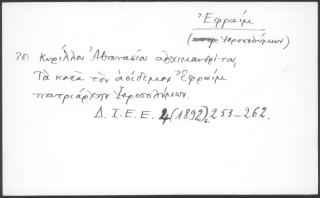 Ἐφραίμ
(πατρ. Ἱεροσολύμων)
Κυρίλλου Ἀθανασίου ἀρχιμανδρίτου,
Τὰ κατὰ τὸν ἀοίδιμον Ἐφραίμ
πατριάρχην Ἱεροσολύμων.
Δ. Ι. Ε. Ε. 4 (1892), 253-262.